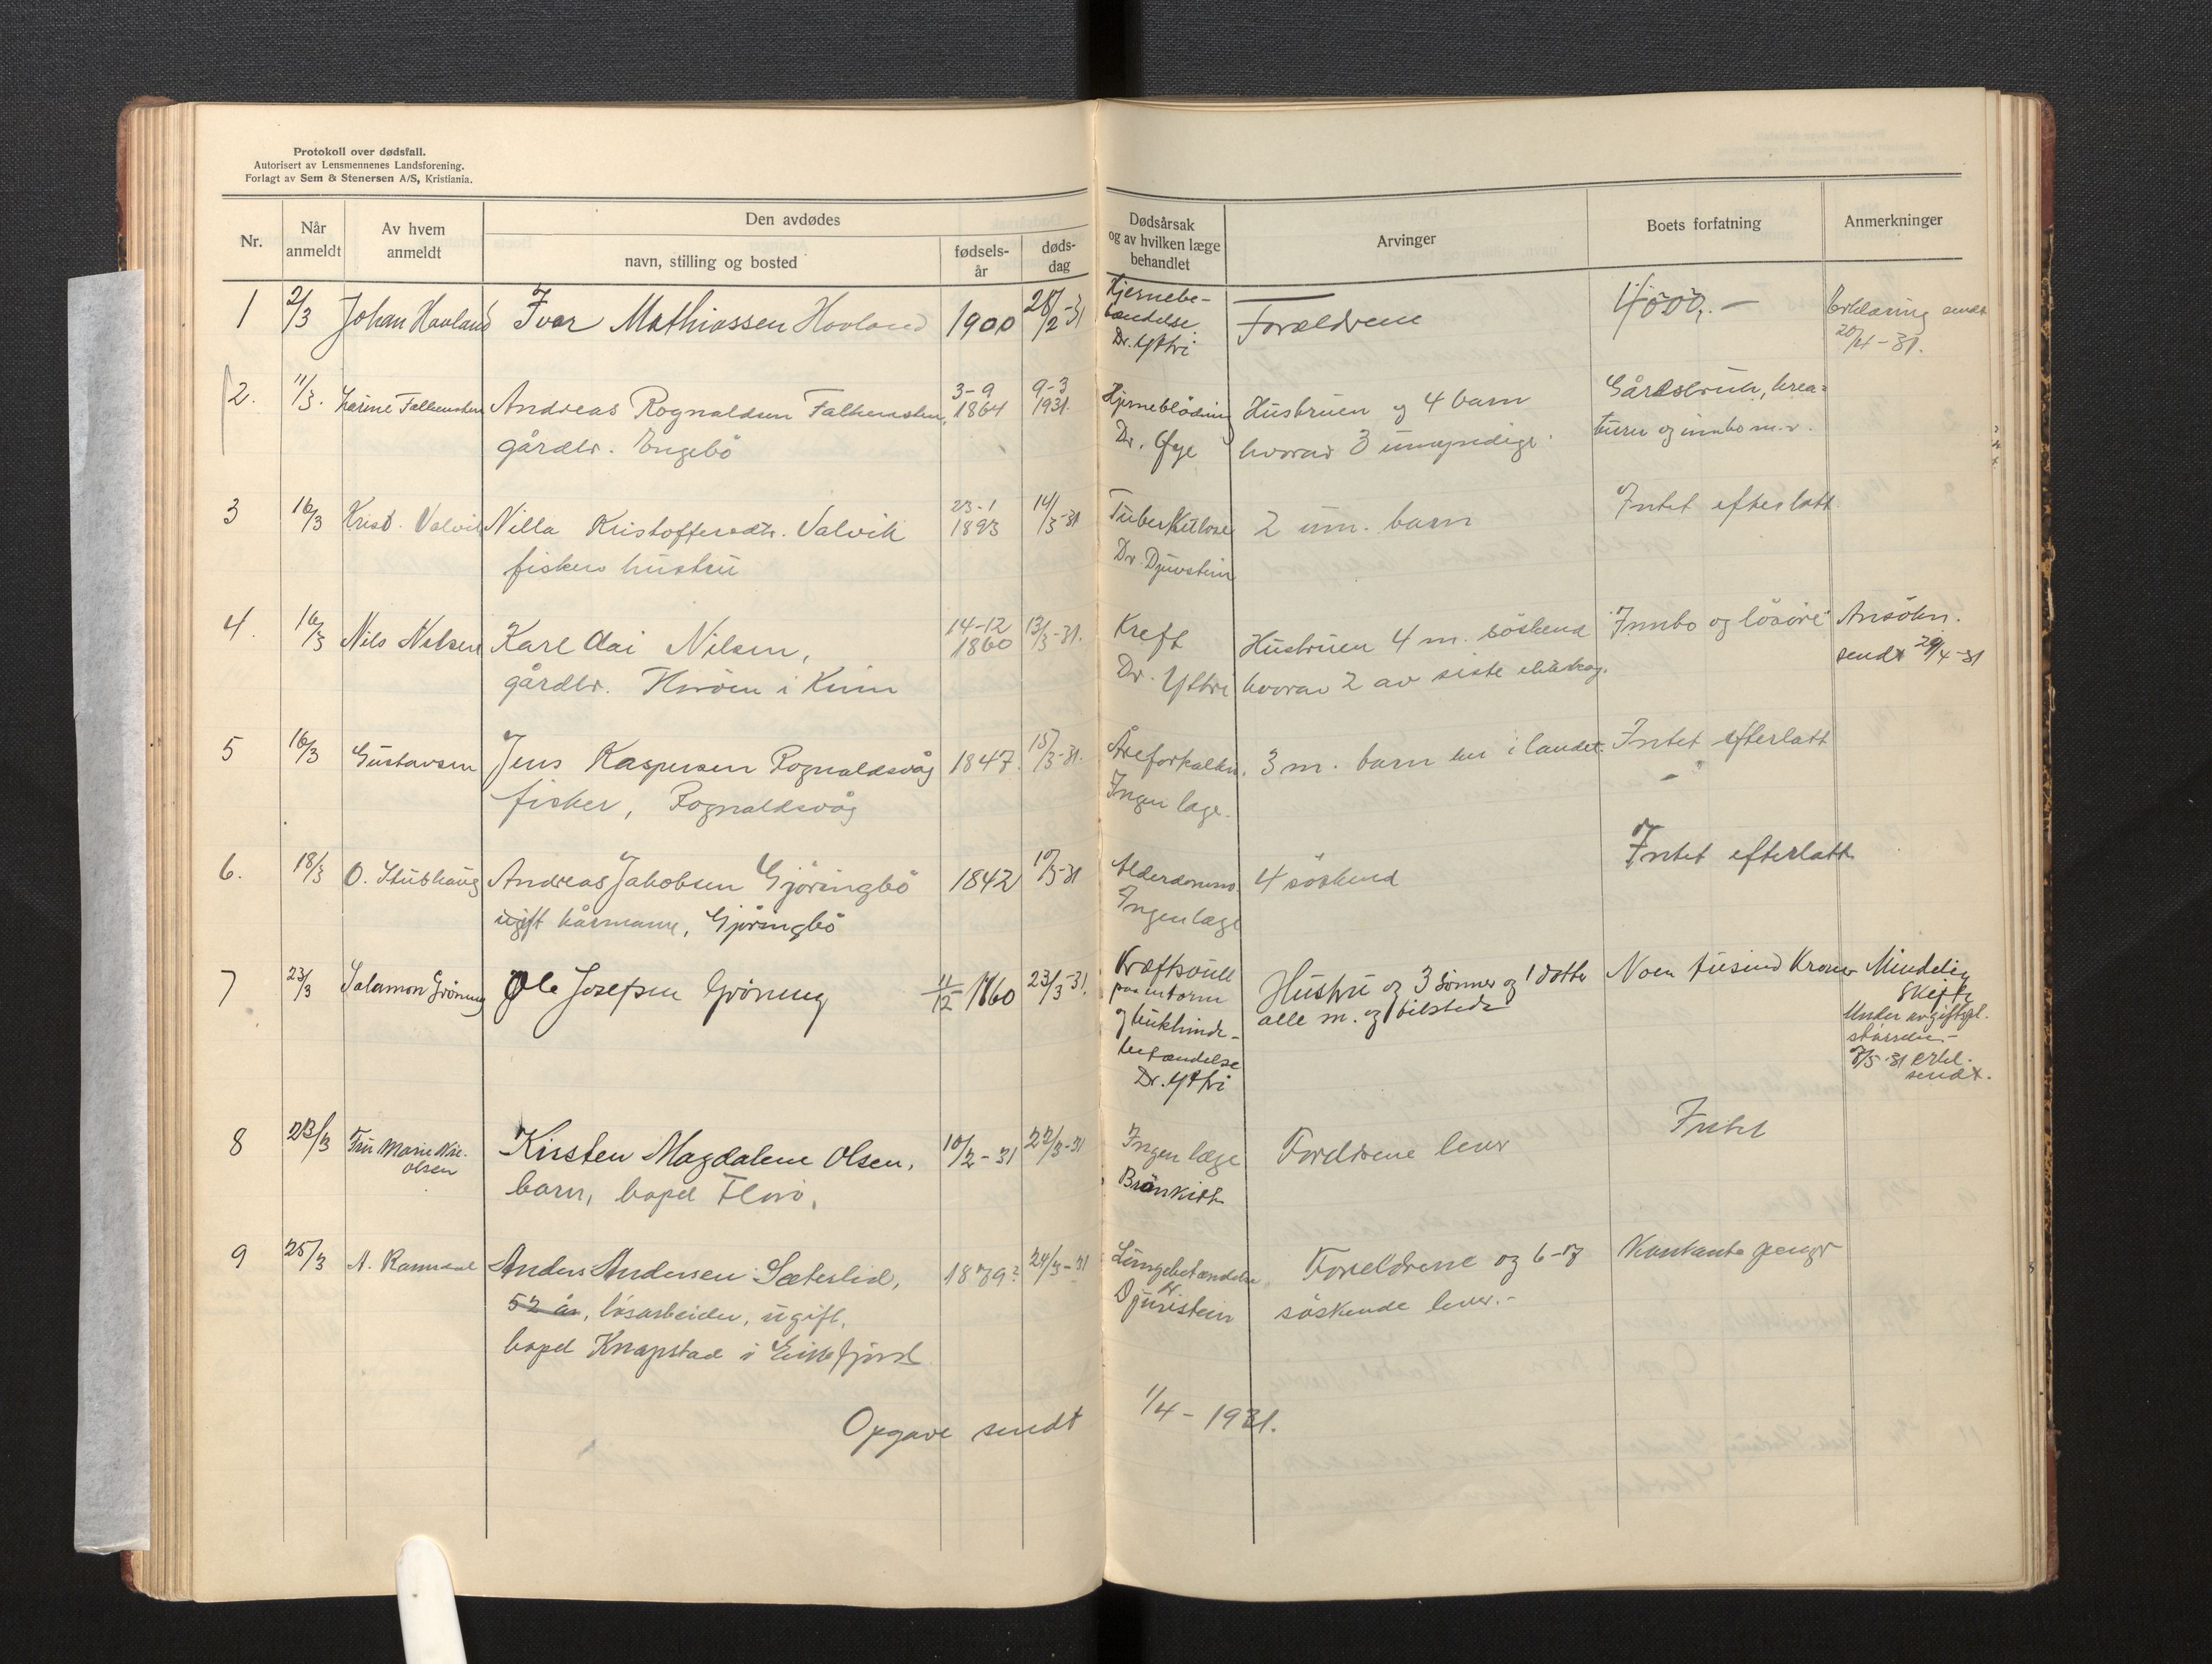 Protokoll over dødsfall.
Autorisert av Lensmennenes Landsforening.
Forlagt av Sem & Stenersen A/S, Kristiania.
Nr.
Når anmeldt
Av hvem anmeldt
Den avdødes
navn, stilling og bosted
fødsels-år
døds-dag
Dødsårsak og av hvilken læge behandlet
Arvinger
Boets forfatning
Anmerkninger
1 2/3 Johan Havland Ivar Mathiassen Hovland 1900 28/2-31 Hjernebe- Forældrene 4000,- Erklæring sendt
tændelse. 20/4-31.
Dr. Ythri
2. 11/3. Karine Falkensten Andreas Rognaldsen Falkensten, 3-9 1864 9-3 1931. Hjerneblödning Hustruen og 4 barn Gårdsbruk, krea=
gårdbr. Engebö Dr. Øye hvorav 3 umyndige. turer og innbo m.v.
3 16/3 Krist. Valvik Nilla Kristoffersdtr. Valvik 23-1 1893 14/3-31 Tuberkulose 2 um. barn Intet efterlatt
fiskers hustru Dr. Djuvstein
4. 16/3 Nils Nilsen Karl Nilsen, 14-12 1860 13/3-31. Kreft Hustruen 4 m. söskend Innbo og lösöre Ansökn.
gårdbr. i Kinn Dr. Ythri hvorav 2 av siste ekteskap. sendt 29/4-31
5 16/3 Gustavsen Jens Kaspersen Rognaldsvåg 1847. 15/3-31. Åreforkalkn. 3 m. barn en i landet. Intet efterlatt
fisker, Rognaldsvåg Ingen læge.
6. 18/3 O. Stubhaug Andreas Jakobsen Gjöringbö 1842 10/3-31 Alderdomms. 4 söskend Intet efterlatt
ugift kårmann, Gjöringbö Ingen læge
7 23/3 Salamon Gröning Ole Josefsen Gröning 11/12 1860 23/3-31. Kræftsvull Hustru og 3 sönner og 1 dotter Noen tusind Kroner Mindelig
paa intarm alle m. og tilstede skifte
og bukhinde- Under avgiftspl.
betændelse störrelse.-
Dr. Ythri 7/5-31 erkl.
sendt.
8 23/3 Fru Marie Olsen Kirsten Magdalene Olsen, 10/2-31 22/3-31 Ingen læge Foreldrene lever Intet
barn, bopel Florö. Brönkitt
9 25/3 A. Ramsdal Anders Andersen Sæterlid, 1879? 24/3-31 Lungebetændelse Foreldrene og 6-7 Kontante penger
52 år, lösarbeider, ugift, Dr. Djuvstein söskende lever.-
bopel Knapstad i Eikefjord
Opgave sendt 1/4-1931.